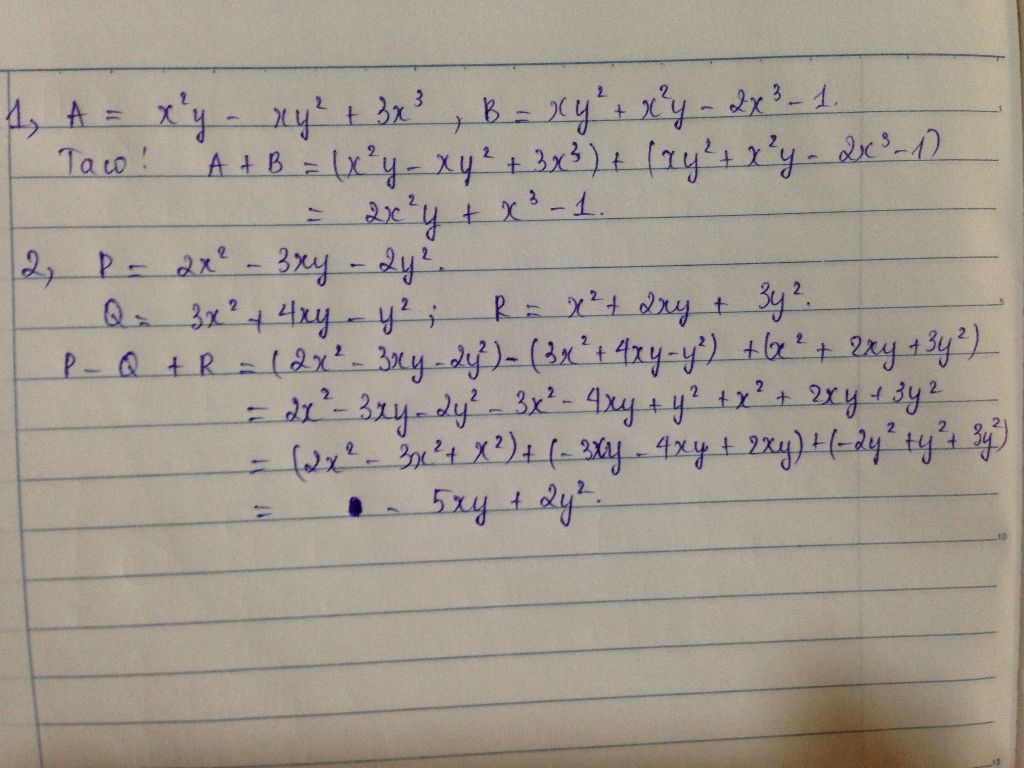 1, A = x²y - xy² + 3x³ , B = xy² + x²y - 2x³ - 1.
Ta có! A + B = (x²y - xy² + 3x³) + (xy² + x²y - 2x³ - 1)
= 2x²y + x³ - 1.
2, P = 2x² - 3xy - 2y².
Q = 3x² + 4xy - y² ; R = x² + 2xy + 3y².
P - Q + R = (2x² - 3xy - 2y²) - (3x² + 4xy - y²) + (x² + 2xy + 3y²)
= 2x² - 3xy - 2y² - 3x² - 4xy + y² + x² + 2xy + 3y²
= (2x² - 3x² + x²) + (- 3xy - 4xy + 2xy) + (-2y² + y² + 3y²)
= - 5xy + 2y².
5
10
15